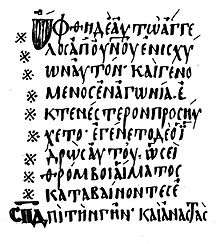 ὤφθηδὲαὐτῶἄγγε
※ λοσἀπουνουενισχύ
※ ωναὐτόν· καὶγενό
※ μενοσἐνἀγωνία· ἐ
※ κτενέστερονπροσηύ
※ χετο· ἐγένετοδὲὁἱ
※ δρὼσαὐτοῦ· ὡσεὶ
※ θρόμβοιαἵματος
※ καταβαίνοντεσἐ
ϹΠΔ πὶτὴνγῆν· καὶἀναστὰς